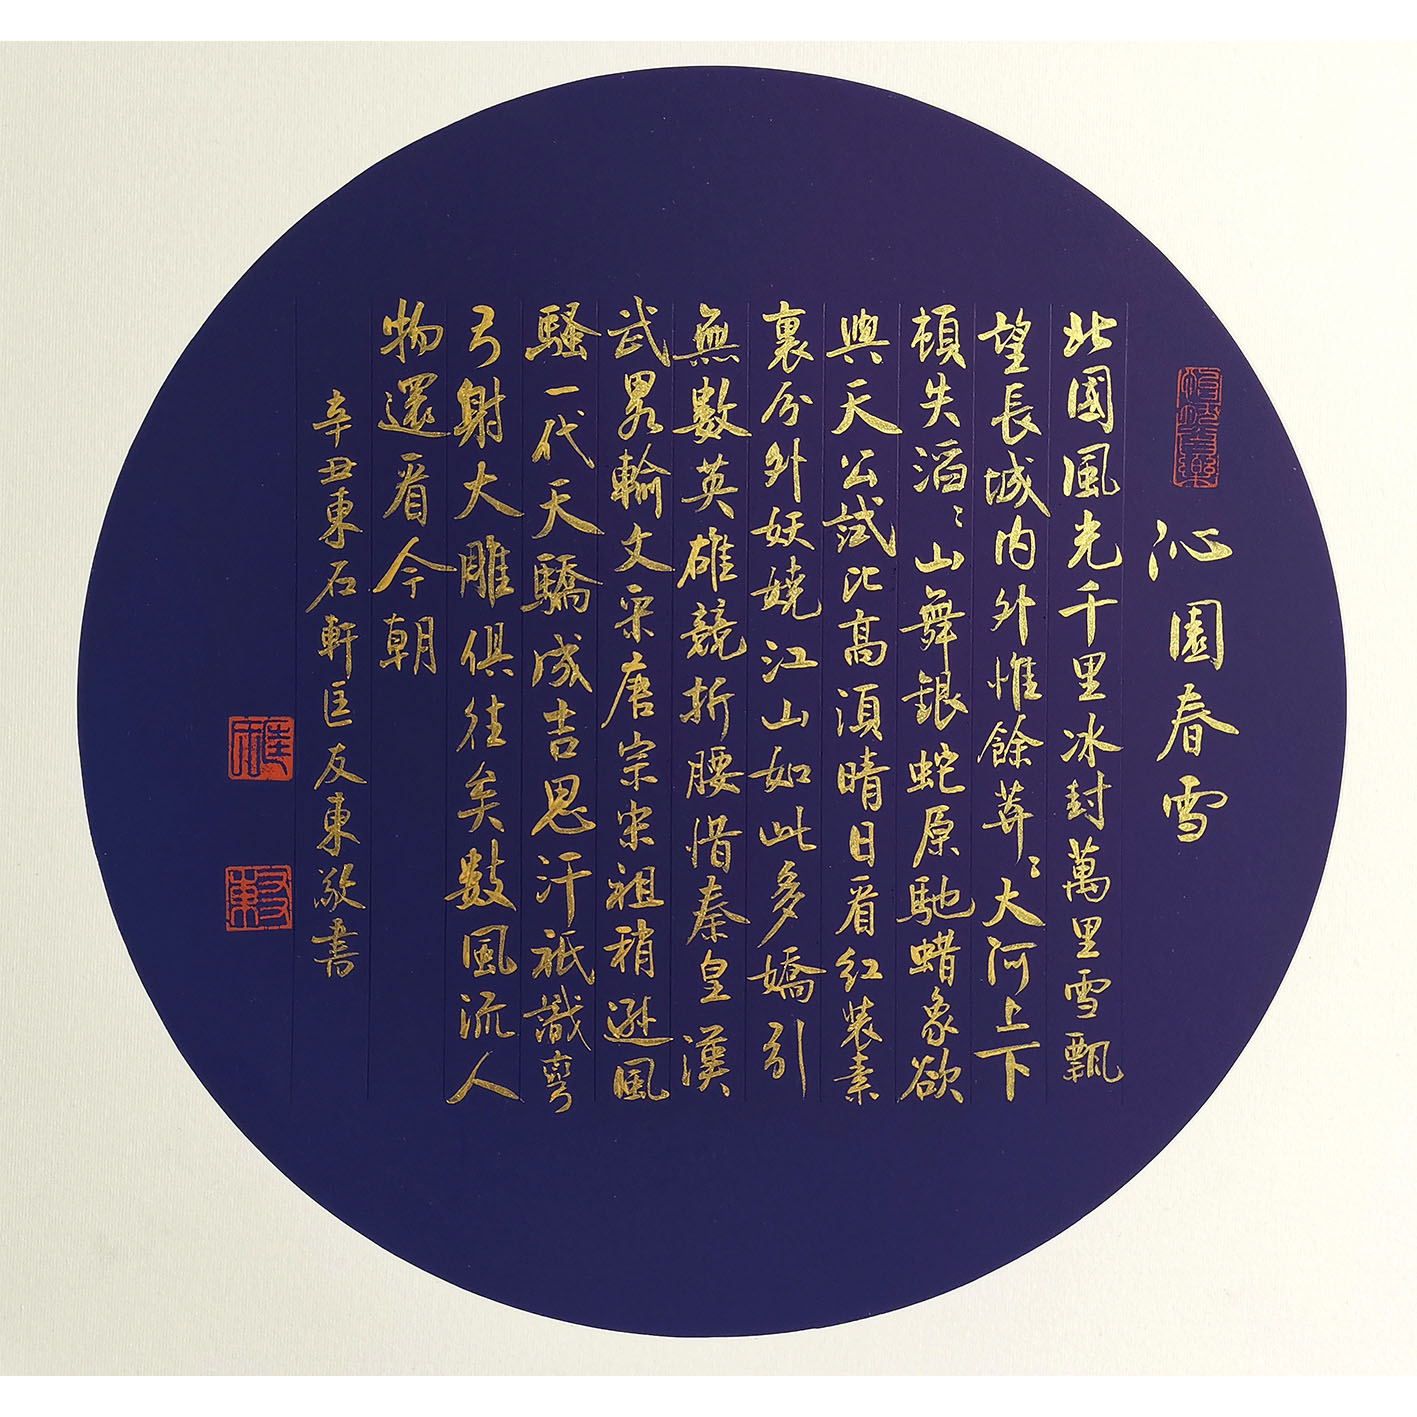 沁園春雪
北國風光千里冰封萬里雪飄
望長城内外惟餘莽〻大河上下
頓失滔〻山舞銀蛇原馳蜡象欲
與天公試比高須晴日看紅裝素
裹分外妖嬈江山如此多嬌引
無數英雄競折腰惜秦皇漢
武畧輸文采唐宗宋祖稍遜風
騷一代天驕成吉思汗祇識彎
弓射大雕俱往矣數風流人
物還看今朝
辛丑東石軒匡友東敬書